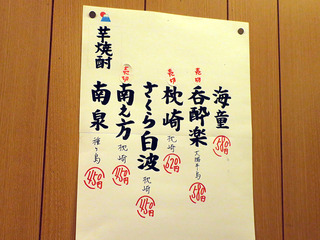 芋焼酎
海童
580円
長期
呑酔楽
大隅半島
580円
長期
枕崎
520円
さくら白波
枕崎
450円
南之方
枕崎
450円
南泉
種子島
450円